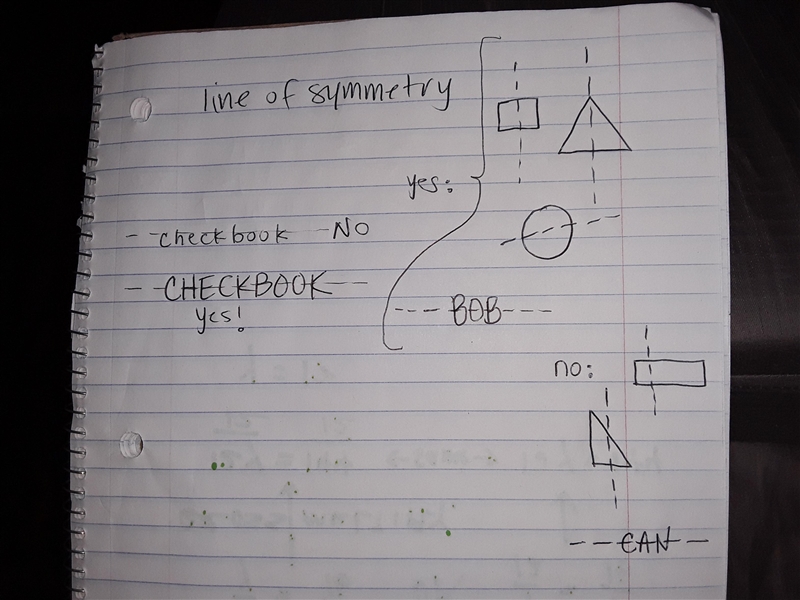 line of symmetry
yes:
checkbook - NO
CHECKBOOK
yes!
BOB
no:
CAN